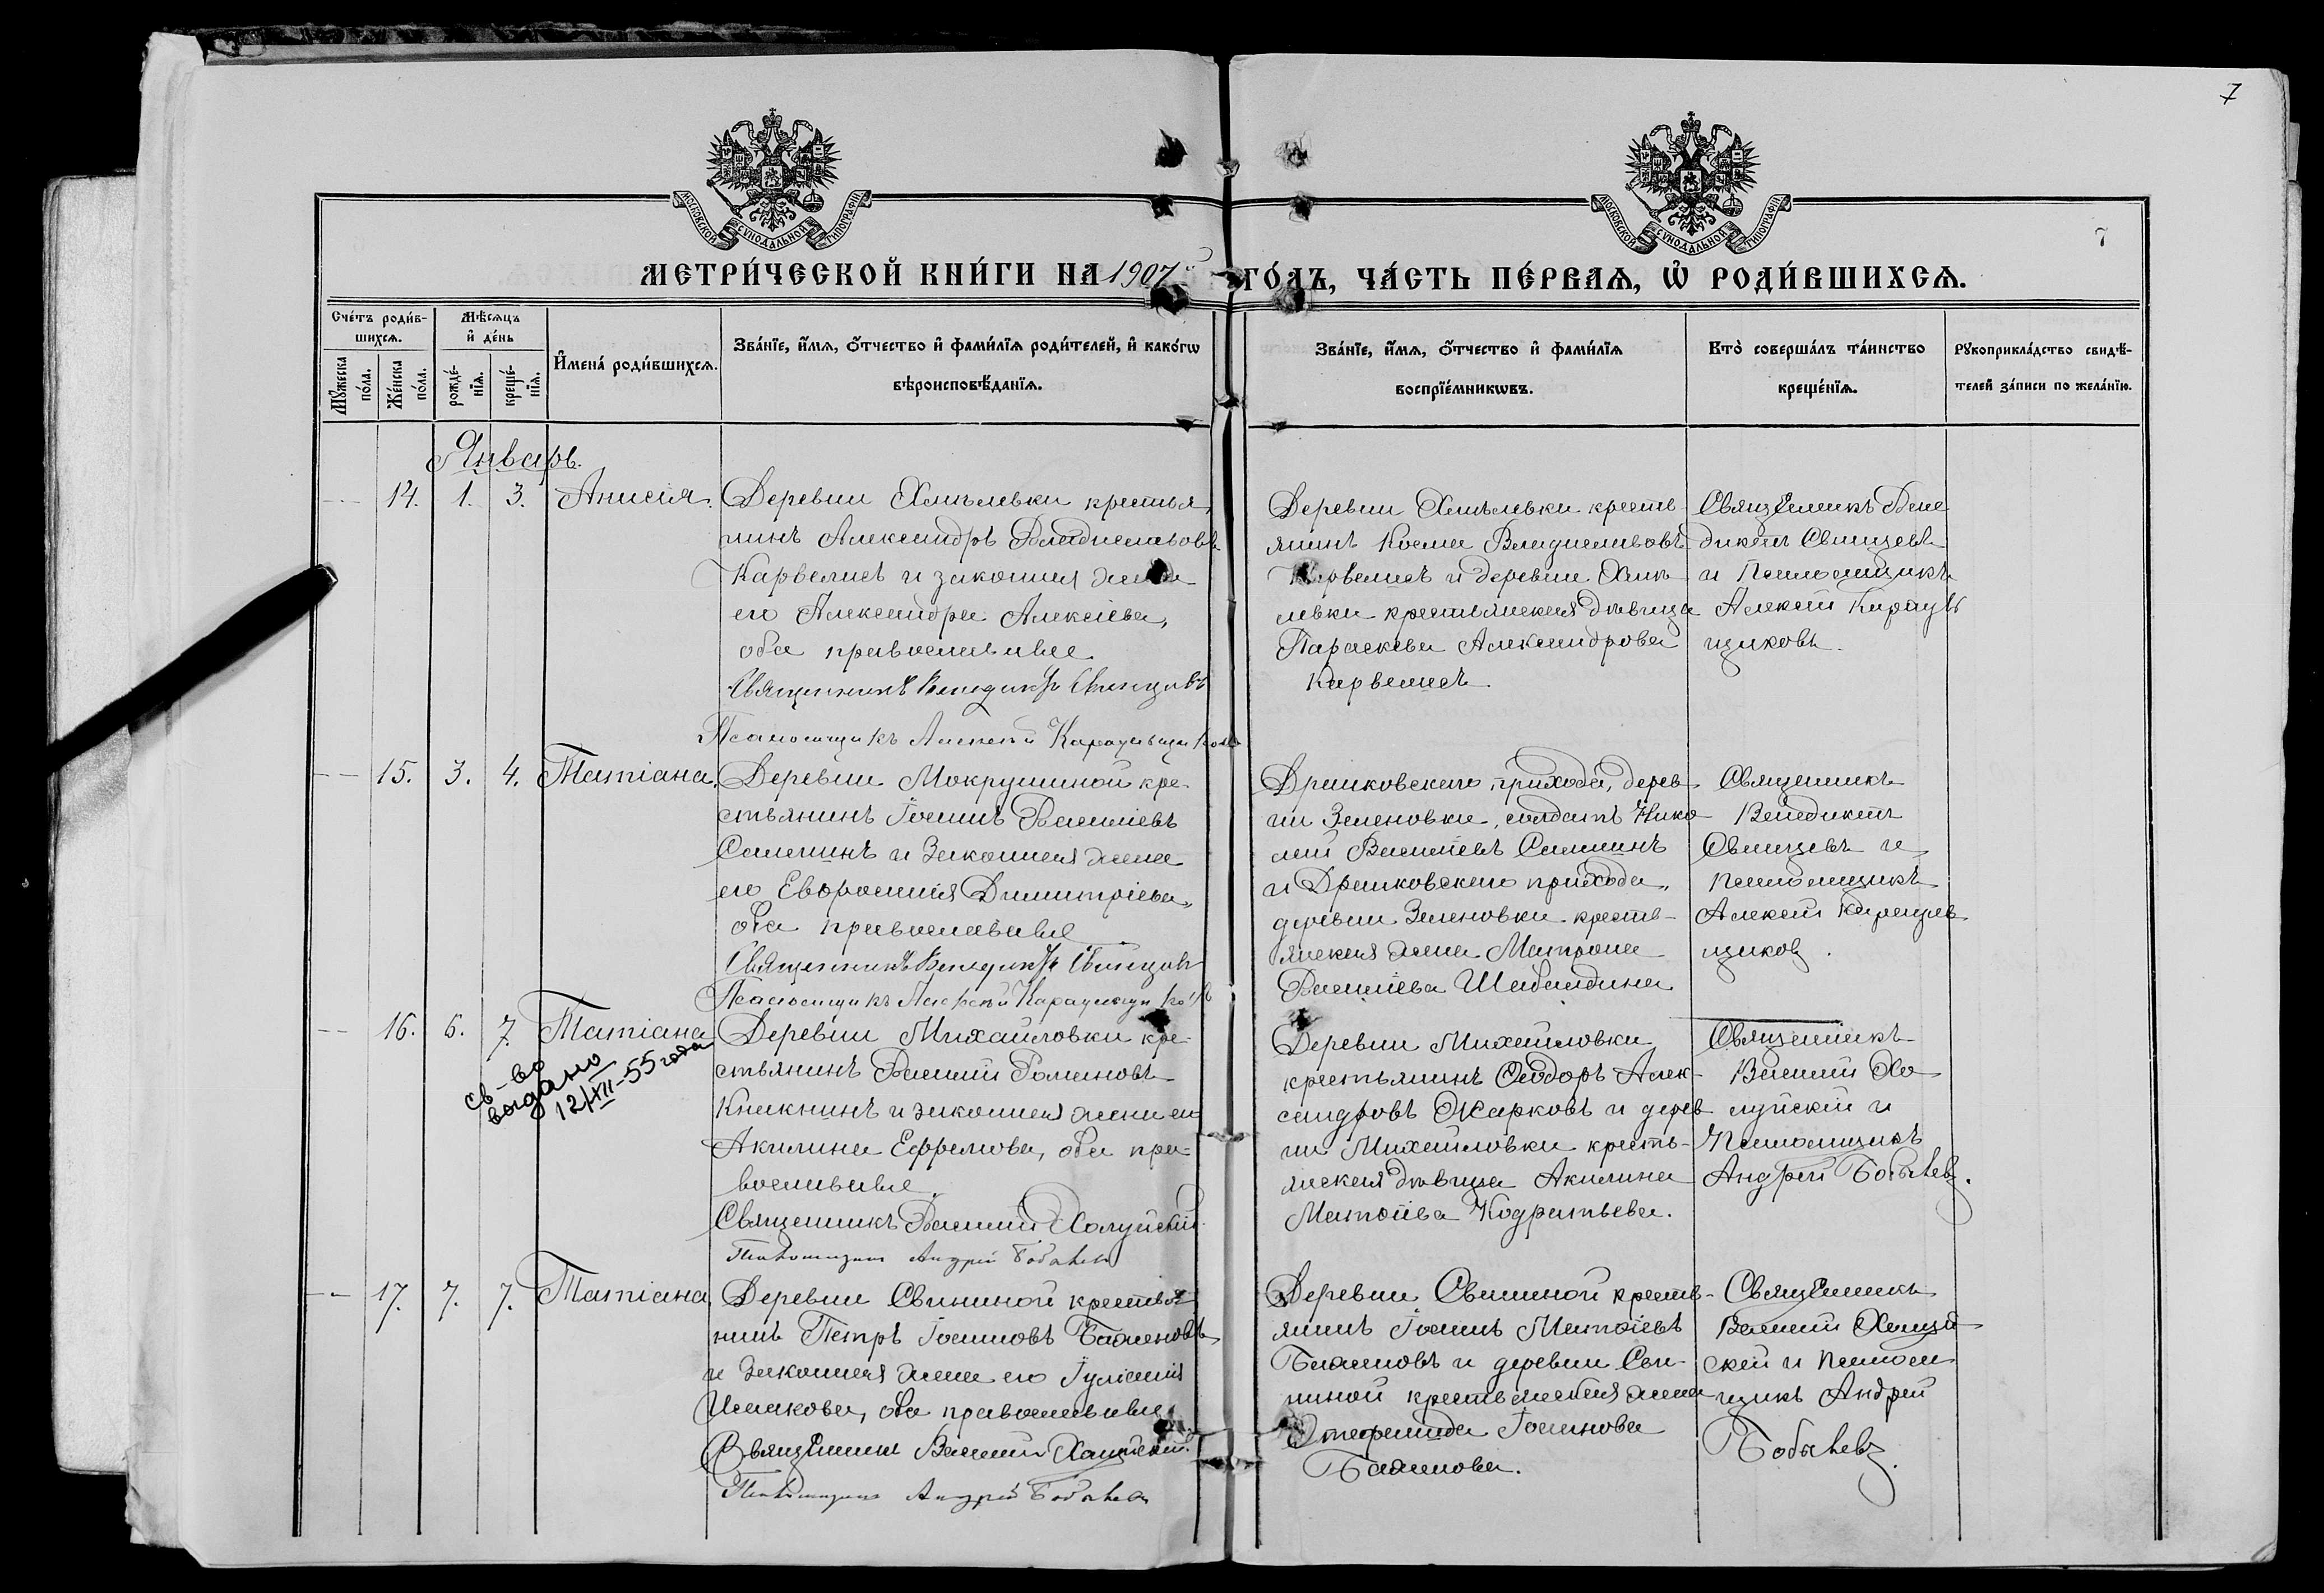 7
МОСКОВСКОЙ СѴНОДАЛЬНОЙ ТИПОГРАФІИ
МОСКОВСКОЙ СѴНОДАЛЬНОЙ ТИПОГРАФІИ
7
МЕТРИ́ЧЕСКОЙ КНИ́ГИ НА 1907й ГО́ДЪ, ЧА́СТЬ ПЕ́РВАѦ, Ѡ҆ РОДИ́ВШИХСѦ.
Сче́тъ роди́в-
шихсѧ.
Мꙋжеска по́ла.
Же́нска по́ла.
Мѣ́сѧцъ
и҆ де́нь
рожде́-
нїѧ.
креще́-
нїѧ.
И҆мена̀ роди́вшихсѧ.
Зва́нїе, и҆́мѧ, ѻ҆́тчество и҆ фами́лїѧ роди́телей, и҆ како́гѡ
вѣроисповѣ́данїѧ.
Зва́нїе, и҆́мѧ, ѻ҆́тчество и҆ фами́лїѧ
воспрїе́мникѡвъ.
Кто̀ соверша́лъ та́инство
креще́нїѧ.
Рꙋкоприкла́дство свидѣ́-
телей за́писи по жела́нїю.
Январь.
14. 1. 3. Анисія.
Деревни Хмѣлевки крестья-
нинъ Александръ Владиславовъ
Карвелисъ и законная жена
его Александра Алексіева,
оба православные.
Священникъ Венедиктъ Свинцовъ
Псаломщикъ Алексѣй Караульщиковъ
Деревни Хмѣлевки кресть-
янинъ Косма Владиславовъ
Карвелисъ и деревни Хмѣ-
левки крестьянская дѣвица
Параскева Александрова
Карвелисъ.
Священникъ Вене-
диктъ Свинцовъ
и Псаломщикъ
Алексѣй Карауль
щиковъ.
15. 3. 4. Татіана.
Деревни Мокрушиной кре-
стьянинъ Іоаннъ Василіевъ
Саланинъ и законная жена
его Евфросинія Димитріева,
оба православные
Священникъ Венедиктъ Свинцовъ
Псаломщикъ Алексѣй Караульщиковъ
прихода, дерев-
ни Зеленовки, солдатъ Нико-
лай Василіевъ Саланинъ
и прихода,
деревни Зеленовки кресть-
янская жена Матрона
Василіева Шабалдина
Священникъ
Венедиктъ
Свинцовъ и
Псаломщикъ
Алексѣй Караулъ
щиковъ.
16. 6. 7. Татіана
св-во
выдано
12/XII-55 года
Деревни Михайловки кре-
стьянинъ Василій Романовъ
Княжнинъ и законная жена его
Акилина Ефремова, оба пра-
вославные.
Священникъ Василій Халуйскій.
Псаломщикъ Андрей Бобылевъ
Деревни Михайловки
крестьянинъ Ѳеодоръ Алек-
сандровъ Жарковъ и дерев
ни Михайловки кресть-
янская дѣвица Акилина
Матѳіева Кодратьева.
Священникъ
Василій Ха-
луйскій и
Псаломщикъ
Андрей Бобылевъ.
17. 7. 7. Татіана.
Деревни Свининой крестья-
нинъ Петръ Іоанновъ Баженовъ
и законная жена его Іуліанія
Исаакова, оба православные
Священникъ Василій Халуйскій.
Псаломщикъ Андрей Бобылевъ
Деревни Свининой кресть-
янинъ Іоаннъ Матѳіевъ
Баженовъ и деревни Сви-
ниной крестьянская жена
Стефанида Іоаннова
Баженова.
Священникъ
Василій Халуй-
скій и Псалом-
щикъ Андрей
Бобылевъ.